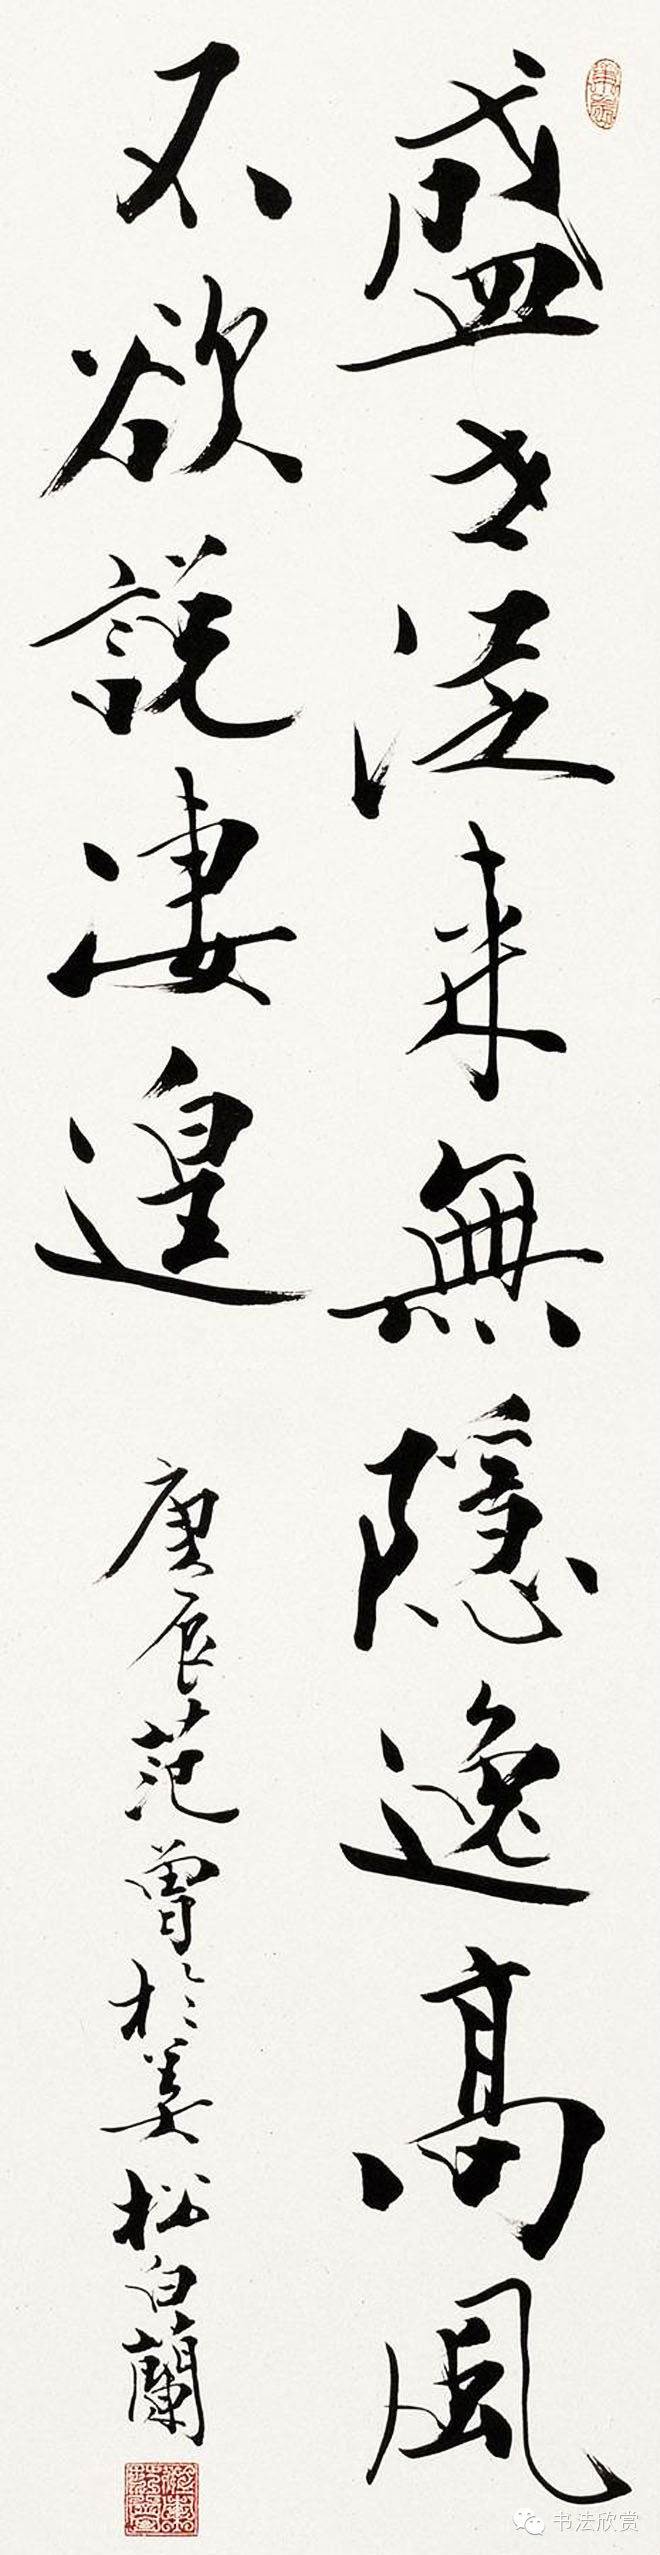 盛世從來無隱逸高風
不欲説凄遑
庚辰范曾於美松白蘭
书法欣赏